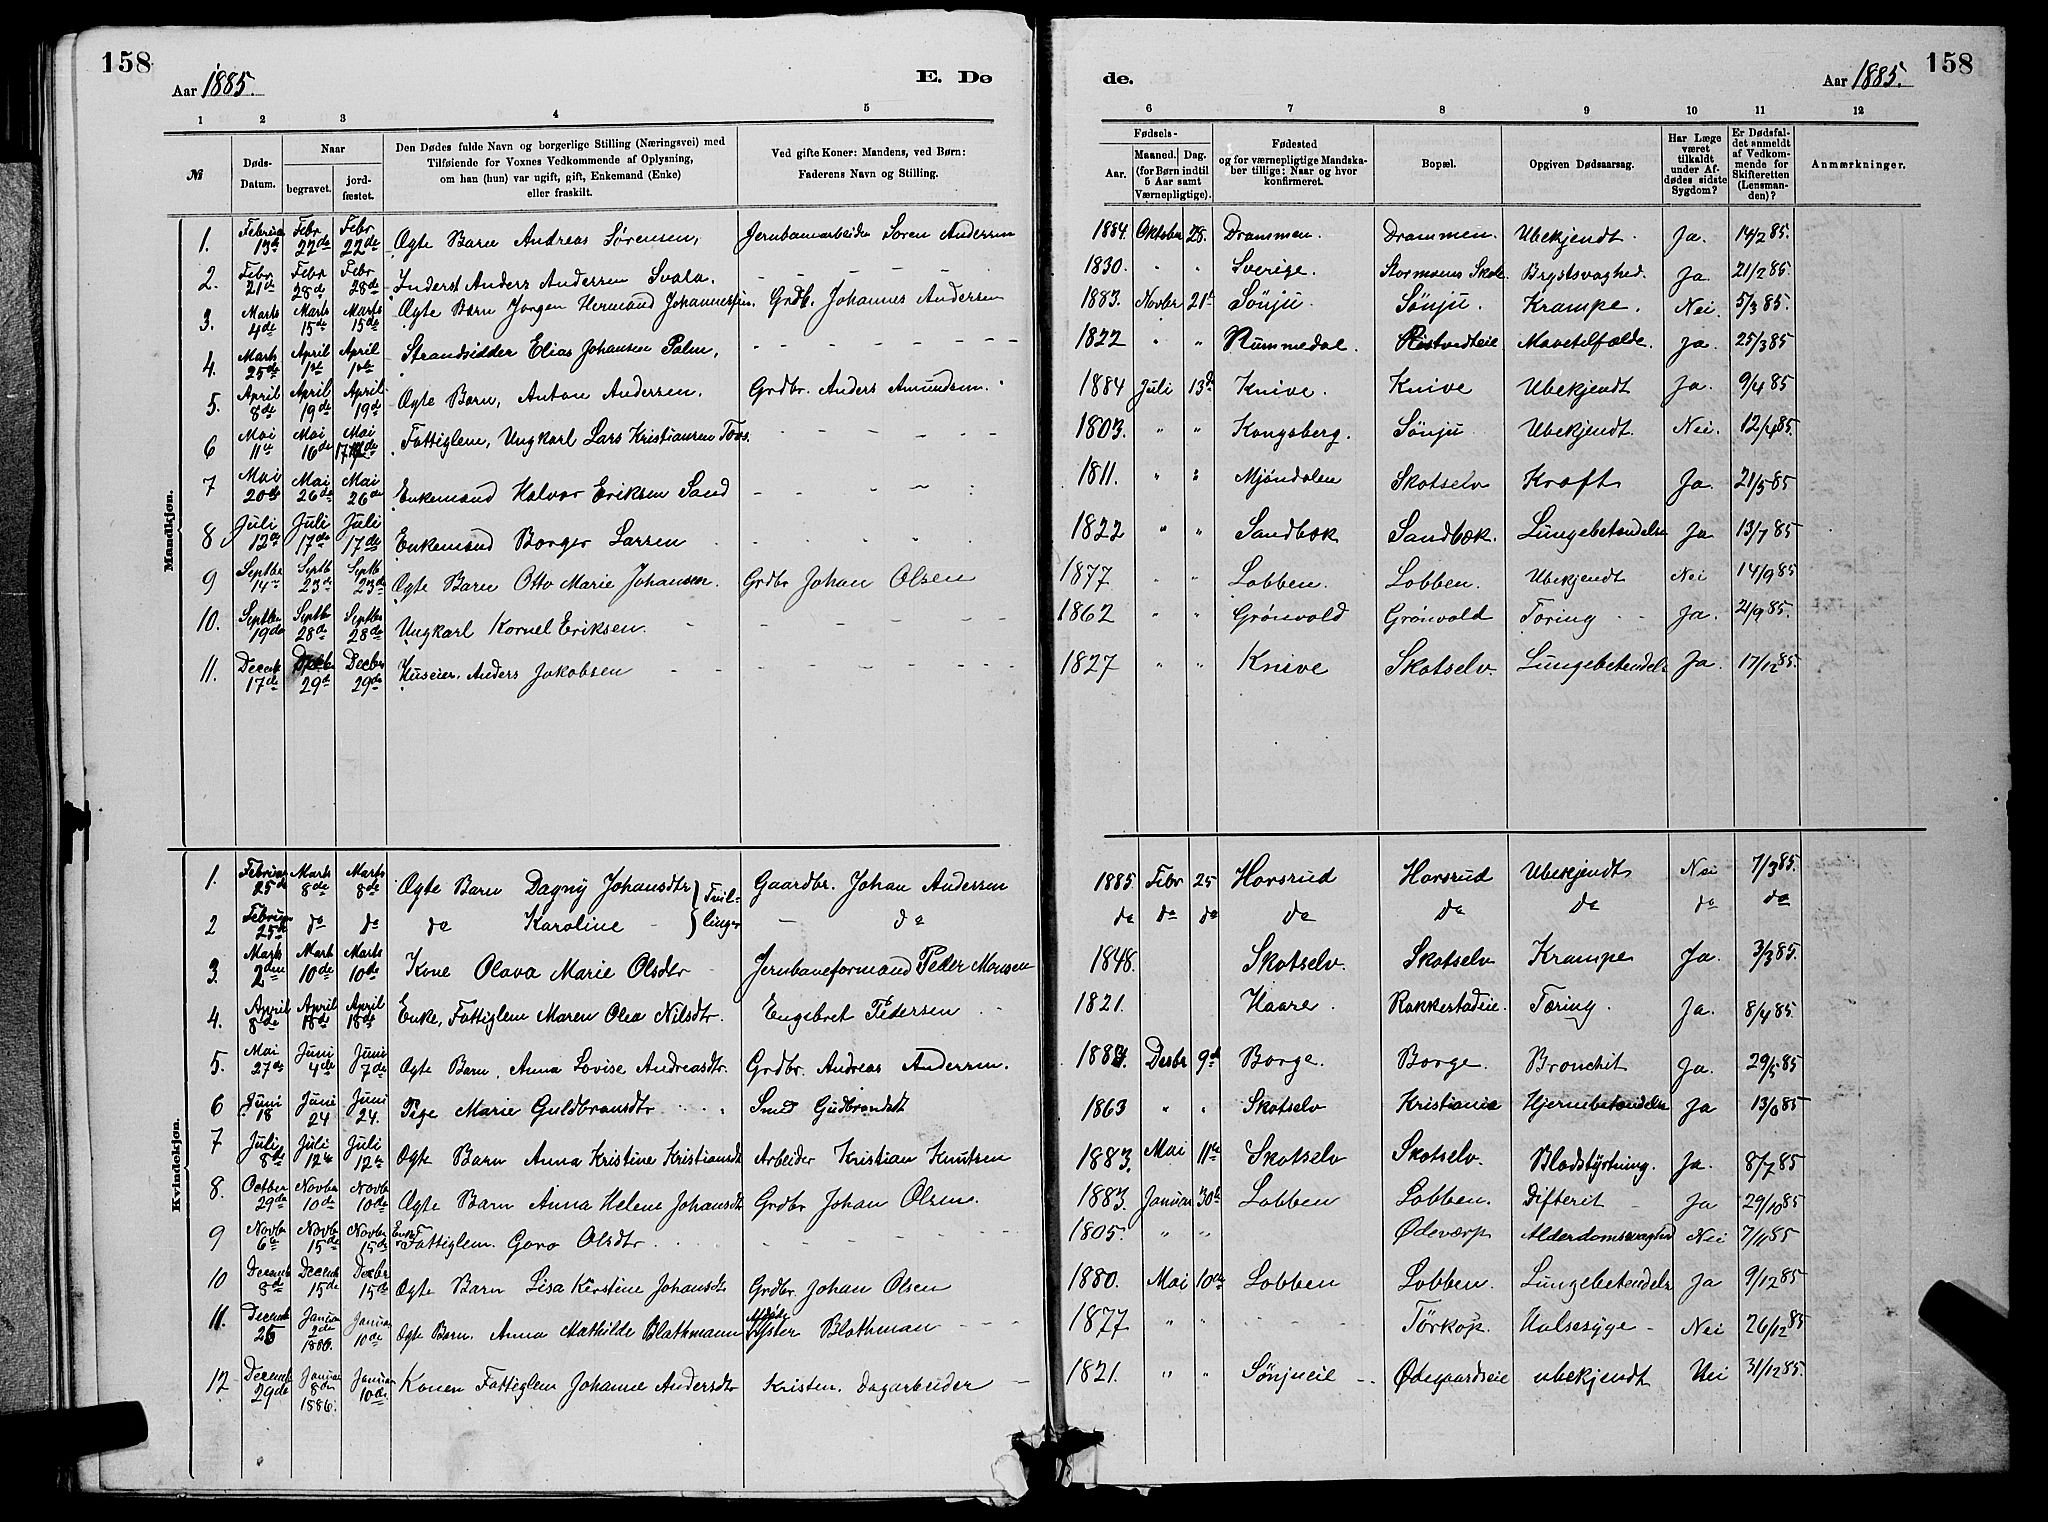 158
158
Aar 1885.
E. Dø
de.
Aar 1885.
1 2 3 4 5 6 7 8 9 10 11 12
№
Døds-Datum.
Naar
begravet.
jord-fæstet.
Den Dødes fulde Navn og borgerlige Stilling (Næringsvei) med
Tilføiende for Voxnes Vedkommende af Oplysning,
om han (hun) var ugift, gift, Enkemand (Enke)
eller fraskilt.
Ved gifte Koner: Mandens, ved Børn:
Faderens Navn og Stilling.
Fødsels-
Aar.
Maaned. Dag.
(for Børn indtil
5 Aar samt
Værnepligtige).
Fødested
og for værnepligtige Mandska-
ber tillige: Naar og hvor
konfirmeret.
Bopæl.
Opgiven Dødsaarsag.
Har Læge
været
tilkaldt
under Af-
dødes sidste
Sygdom?
Er Dødsfal-
det anmeldt
af Vedkom-
mende for
Skifteretten
(Lensman-
den)?
Anmærkninger.
Mandkjøn.
1. Februar 13de Febr 22de Febr 22de Ægte Barn Andreas Sørensen, Jernbanearbeider Søren Andersen 1884. Oktober 28. Drammen. Drammen. Ubekjendt. Ja. 14/2 85.
2. Febr 21de Febr 28de Febr 28de Inderst Anders Andersen Svala. - - - - 1830. " " Sverige. Stormoens Skole Brystsvaghed. Ja 21/2 85.
3. Marts 4de Marts 15de Marts 15de Ægte Barn Jørgen Hermand Johannessen. Grdb. Johannes Andersen 1883. Novbr 21de Sönju. Sönju. Krampe. Nei. 5/3 85.
4. Marts 25de April 1ste April 1ste Strandsidder Elias Johansen Palm, - - - - 1822 " " Nummedal. Ristvedteie Mavetilfælde. Ja. 25/3 85
5. April 8de April 19de April 19de Ægte Barn, Anton Andersen, Grdbr. Anders Amundsen. 1884 Juli 13de Knive. Knive Ubekjendt Ja. 9/4 85
6 Mai 11te Mai 16de Mai 17de Fattiglem, Ungkarl Lars Kristiansen - - - - 1803. " " Kongsberg. Sönju Ubekjendt. Nei. 12/4 85.
7 Mai 20de Mai 26de Mai 26de Enkemand Halvor Eriksen Sand - - - - 1811. " " Mjøndalen Skotselv Kræft Ja. 21/5 85
8 Juli 12te Juli 17de Juli 17de Enkemand Borger Larsen 1822 " " Sandbæk Sandbæk. Lungebetændelse Ja. 13/7 85
9 Septbr 14de Septb 23de Septb 23de Ægte Barn Otto Marie Johansen. Grdbr Johan Olsen 1877 " " Lobben. Lobben. Ubekjendt Nei 14/9 85
10. Septbr 19de Septb 28de Septbr 28de Ungkarl Kornel Eriksen. - - - - 1862 " " Grönvold Grönvold Tæring - - Ja. 21/9 85.
11. Decemb 17de 29de Decbr 29de Huseier. Anders Jakobsen - - - - 1827 " " Knive Skotselv. Lungebetændelse Ja. 17/12 85.
Kvindekjøn.
1. Februar 25de Marts 8de Marts 8de Ægte Barn Dagny Johansdtr } Tvil- Gaardbr. Johan Andersen 1885. Febr 25 Horsrud Horsrud Ubekjendt Nei 7/3 85.
2 Februar 25de do do do Karoline - } linger - do do do do do do do do do
3. Marts 2den Marts 10de Marts 10de Kone Olava Marie Olsdtr Jernbaneformand Peder Monsen 1848. Skotselv. Skotselv Krampe Ja. 3/3 85.
4. April 8de April 18de April 18de Enke, Fattiglem Maren Olea Nilsdtr. Engebret Pedersen 1821. Haare. Rakkestadeie. Tæring. Ja. 8/4 85.
5. Mai 27de Juni 4de Juni 7de Ægte Barn. Anna Lovise Andreasdtr. Grdbr. Andreas Andersen. 1883. Decbr 9de Borge. Borge. Bronchit Ja. 29/5 85
6 Juni 18 Juni 24 Juni 24. Pige Marie Guldbrandsdtr Smed Gudbrandsdt 1863 " " Skotselv Kristiania Hjernebetændelse Ja 85
7 Juli 8de Juli 12te Juli 12te Ægte Barn Anna Kristine Kristiansdt Arbeider Kristian Knutsen 1883. Mai 11te Skotselv Skotselv. Blodstyrtning. Ja. 8/7 85
8. October 29de Novbr 10de Novbr 10de Ægte Barn Anna Helene Johansdt Grdbr Johan Olsen. 1883. Januar 30te Lobben Lobben. Difterit Ja 29/10 85
9 Novbr 6te Novbr 15de Novbr 15de Enke Fattiglem. Goro Olsdtr - - - - 1805. " " Ødeværp Alderdomssvaghed Nei 7/11 85
10 Decemb 8de Decemb 15de Decbr 15de Ægte Barn Lisa Kirstine Johansdt Grdbr. Johan Olsen 1880. Mai 10de Lobben Lobben. Lungebetændelse Ja 9/12 85
11. Decemb 25 Januar 2den 1886. Januar 10de Ægte Barn. Anna Mathilde Blathmann Blathman 1877 " " - - - Törkop. Halsesyge - Nei 26/12 85
12 Decemb 29de Januar 8de 1886. Januar 10de Konen Fattiglem Johanne Andersdtr Kristen. Dagarbeider - 1821. " " Sönjueie - Ødegaardseie ubekjendt Nei 31/12 85.